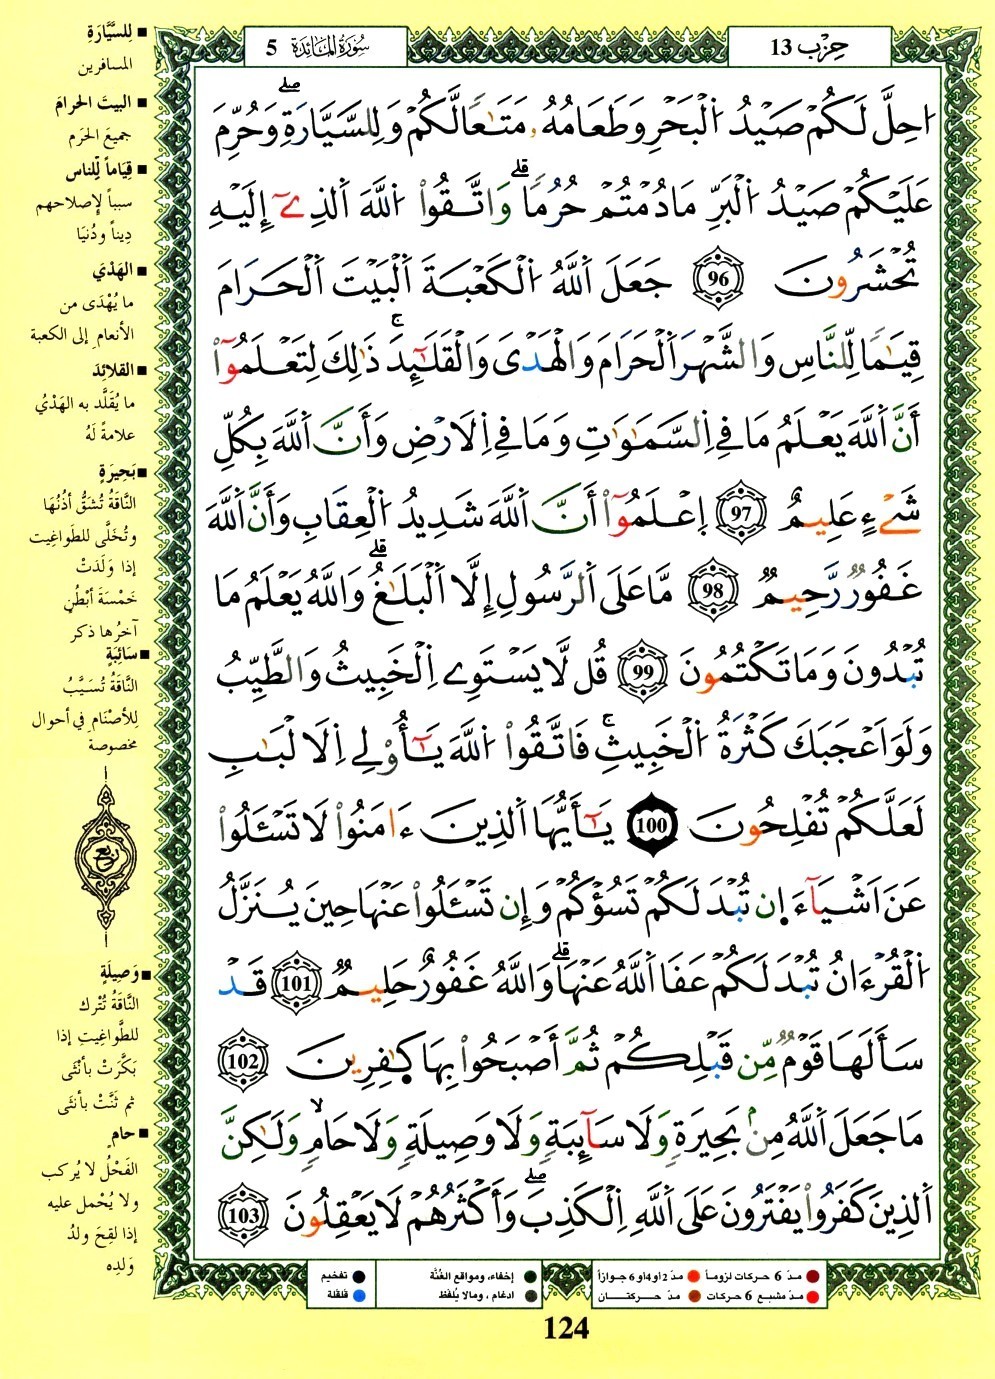 حِزْب 13
سُورَةُ المَائِدَة 5
اُحِلَّ لَكُمْ صَيْدُ اُ۬لْبَحْرِ وَطَعَامُهُۥ مَتَٰعاٗ لَّكُمْ وَلِلسَّيَّارَةِۖ وَحُرِّمَ
عَلَيْكُمْ صَيْدُ اُ۬لْبَرِّ مَا دُمْتُمْ حُرُماٗۗ وَاتَّقُواْ اُ۬للَّهَ اَ۬لذِےٓ إِلَيْهِ
تُحْشَرُونَ 96 جَعَلَ اَ۬للَّهُ اُ۬لْكَعْبَةَ اَ۬لْبَيْتَ اَ۬لْحَرَامَ
قِيَٰماٗ لِّلنَّاسِ وَالشَّهْرَ اَ۬لْحَرَامَ وَالْهَدْىَ وَالْقَلَٰٓئِدَۚ ذَٰلِكَ لِتَعْلَمُوٓاْ
أَنَّ اَ۬للَّهَ يَعْلَمُ مَا فِے اِ۬لسَّمَٰوَٰتِ وَمَا فِے اِ۬لَارْضِ وَأَنَّ اَ۬للَّهَ بِكُلِّ
شَےْءٍ عَلِيمٌ 97 اِعْلَمُوٓاْ أَنَّ اَ۬للَّهَ شَدِيدُ اُ۬لْعِقَابِ وَأَنَّ اَ۬للَّهَ
غَفُورٞ رَّحِيمٞ 98 مَّا عَلَى اَ۬لرَّسُولِ إِلَّا اَ۬لْبَلَٰغُۗ وَاللَّهُ يَعْلَمُ مَا
تُبْدُونَ وَمَا تَكْتُمُونَ 99 قُل لَّا يَسْتَوِے اِ۬لْخَبِيثُ وَالطَّيِّبُ
وَلَوَ اَعْجَبَكَ كَثْرَةُ اُ۬لْخَبِيثِۚ فَاتَّقُواْ اُ۬للَّهَ يَٰٓأُوْلِے اِ۬لَالْبَٰبِ
لَعَلَّكُمْ تُفْلِحُونَ 100 يَٰٓأَيُّهَا اَ۬لذِينَ ءَامَنُواْ لَا تَسْـَٔلُواْ
عَنَ اَشْيَآءَ اِ۪ن تُبْدَ لَكُمْ تَسُؤْكُمْ وَإِن تَسْـَٔلُواْ عَنْهَا حِينَ يُنَزَّلُ
اُ۬لْقُرْءَانُ تُبْدَ لَكُمْ عَفَا اَ۬للَّهُ عَنْهَاۗ وَاللَّهُ غَفُورٌ حَلِيمٞ 101 قَدْ
سَأَلَهَا قَوْمٞ مِّن قَبْلِكُمْ ثُمَّ أَصْبَحُواْ بِهَا كَٰفِرِينَ 102
مَا جَعَلَ اَ۬للَّهُ مِنۢ بَحِيرَةٖ وَلَا سَآئِبَةٖ وَلَا وَصِيلَةٖ وَلَا حَامٖ وَلَٰكِنَّ
اَ۬لذِينَ كَفَرُواْ يَفْتَرُونَ عَلَى اَ۬للَّهِ اِ۬لْكَذِبَۖ وَأَكْثَرُهُمْ لَا يَعْقِلُونَ 103
■ لِلسَّيَّارَةِ
المسافرين
■ البيتَ الحرامَ
جميعَ الحَرَم
■ قِيَاماً لِّلناس
سبباً لإصلاحهم
دِيناً ودُنيَا
■ الهَدْيَ
ما يُهْدَى من
الأنعام إلى الكعبة
■ القلائِدَ
ما يُقَلَّد به الهَدْيُ
علامةً لَهُ
■ بَحِيرَةٍ
النَّاقَةُ تُشَقُّ أذُنُهَا
وتُخَلَّى للطَواغِيت
إذا وَلَدَتْ
خَمْسَةَ أبْطُنٍ
آخرُها ذكر
■ سَائِبَةٍ
النَّاقَةُ تُسَيَّبُ
لِلأصْنَام في أحوال
مخصوصة
ربع
■ وَصِيلَةٍ
النَّاقَةُ تُتْرك
للطَّوَاغِيتِ إذا
بَكَّرَتْ بأنْثَى
ثم ثَنَّتْ بأنثَى
■ حام
الفَحْلُ لا يُركب
ولا يُحْمل عليه
إذا لقِحَ ولدُ
وَلدِه
مدّ 6 حركات لزوماً مدّ 2 أو 4 أو 6 جوازاً
مدّ مشبع 6 حركات مدّ حـركتـان
إخفاء، ومواقع الغُنَّة
ادغام، ومالا يُلفظ
تفخيم
قلقلة
124